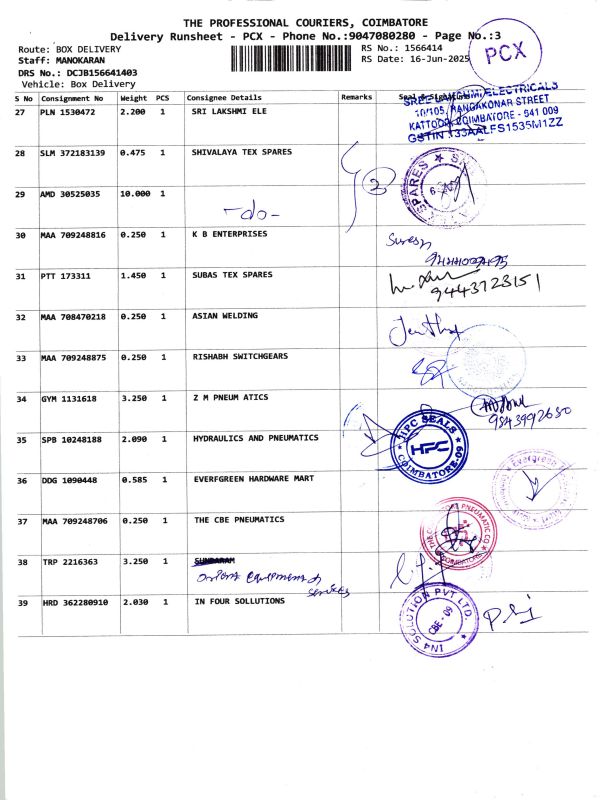 THE PROFESSIONAL COURIERS, COIMBATORE
Delivery Runsheet - PCX - Phone No.:9047080280 - Page No.:3
Route: BOX DELIVERY
RS No.: 1566414
Staff: MANOKARAN
RS Date: 16-Jun-2025
DRS No.: DCJB156641403
Vehicle: Box Delivery
PCX
S No Consignment No Weight PCS Consignee Details Remarks Seal & Signature
27 PLN 1530472 2.200 1 SRI LAKSHMI ELE
SREE LAKSHMI ELECTRICALS
10/105, RANGAKONAR STREET
KATTOOR, COIMBATORE - 641 009
GSTIN :33AALFS1535M1ZZ
28 SLM 372183139 0.475 1 SHIVALAYA TEX SPARES
SPARES
29 AMD 30525035 10.000 1
-do-
30 MAA 709248816 0.250 1 K B ENTERPRISES
31 PTT 173311 1.450 1 SUBAS TEX SPARES
9443723151
32 MAA 708470218 0.250 1 ASIAN WELDING
33 MAA 709248875 0.250 1 RISHABH SWITCHGEARS
34 GYM 1131618 3.250 1 Z M PNEUM ATICS
9843992630
35 SPB 10248188 2.090 1 HYDRAULICS AND PNEUMATICS
HPC SEALS
HPC
COIMBATORE-09
36 DDG 1090448 0.585 1 EVERFGREEN HARDWARE MART
Evergreen
37 MAA 709248706 0.250 1 THE CBE PNEUMATICS
38 TRP 2216363 3.250 1 SUNDARAM
services
39 HRD 362280910 2.030 1 IN FOUR SOLLUTIONS
IN4 SOLUTION PVT LTD.
CBE - 09